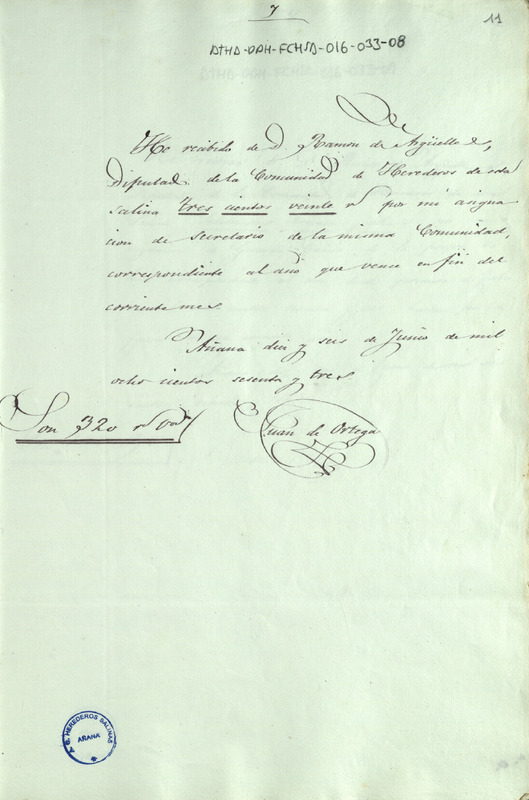 7
11
ATHA-DAH-FCHSA-016-033-08
He recibido de D. Ramon de Argüelles,
Diputado de la Comunidad de Herederos de esta
Salina tres cientos veinte r.s por mi asigna
cion de Secretario de la misma Comunidad,
correspondiente al año que vence en fin del
corriente mes
Añana diez y seis de Junio de mil
ocho cientos sesenta y tres
Son 320 r.s v.n
Juan de Ortega
HEREDEROS SALINAS
AÑANA